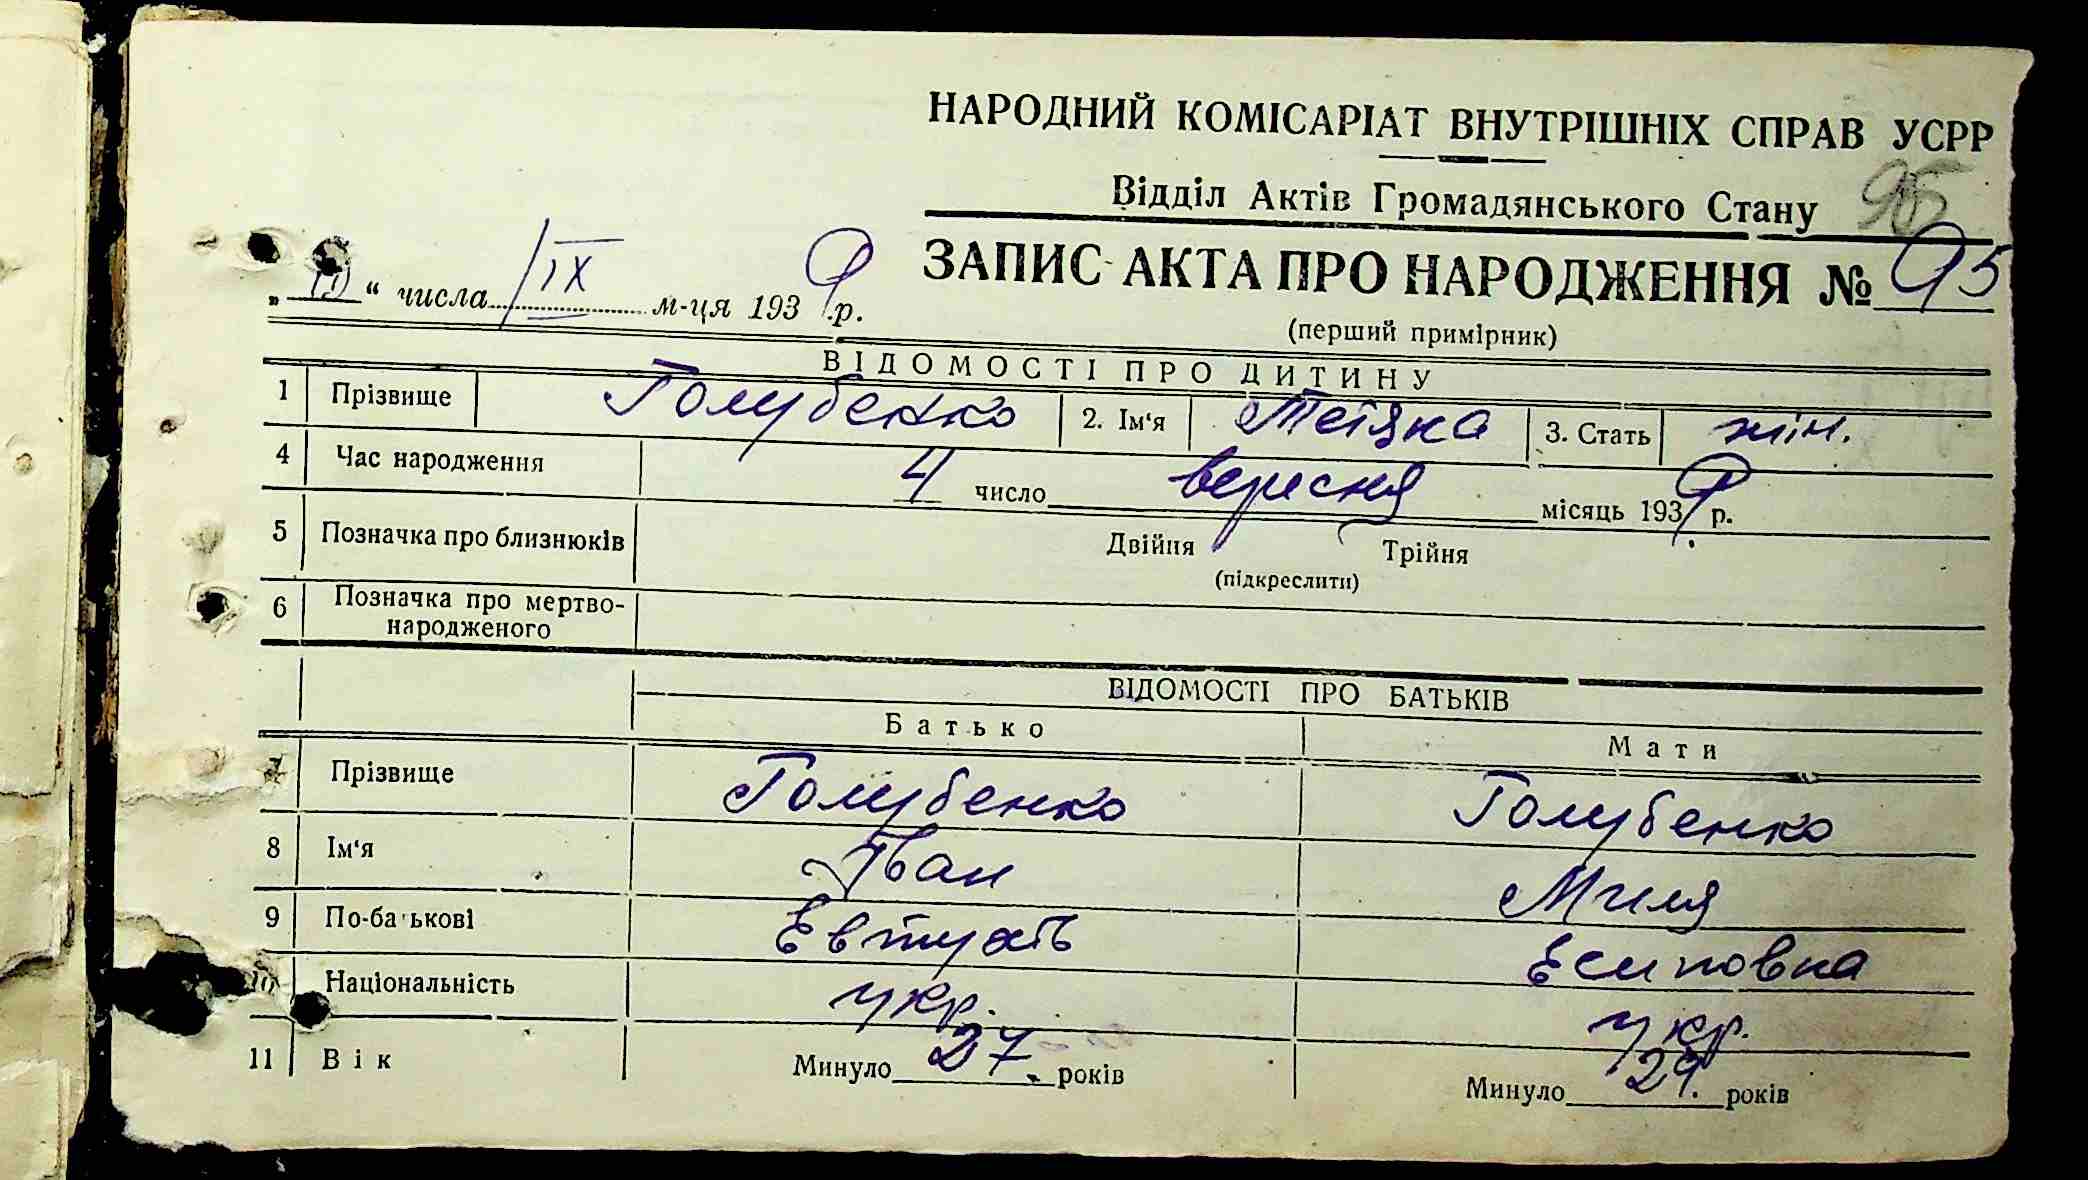 НАРОДНИЙ КОМІСАРІАТ ВНУТРІШНІХ СПРАВ УСРР
Відділ Актів Громадянського Стану 95
ЗАПИС АКТА ПРО НАРОДЖЕННЯ № 95
„ “ числа IX м-ця 1939 р.
(перший примірник)
ВІДОМОСТІ ПРО ДИТИНУ
1 Прізвище Голубенко 2. Ім‘я Тетяна 3. Стать жін.
4 Час народження 4 число вересня місяць 1939 р.
5 Позначка про близнюків Двійня Трійня
(підкреслити)
6 Позначка про мертво-
народженого
ВІДОМОСТІ ПРО БАТЬКІВ
Батько Мати
7 Прізвище Голубенко Голубенко
8 Ім‘я Іван Миля
9 По-батькові Евтухов Есиповна
10 Національність укр. укр.
11 Вік Минуло 27. років Минуло 29. років